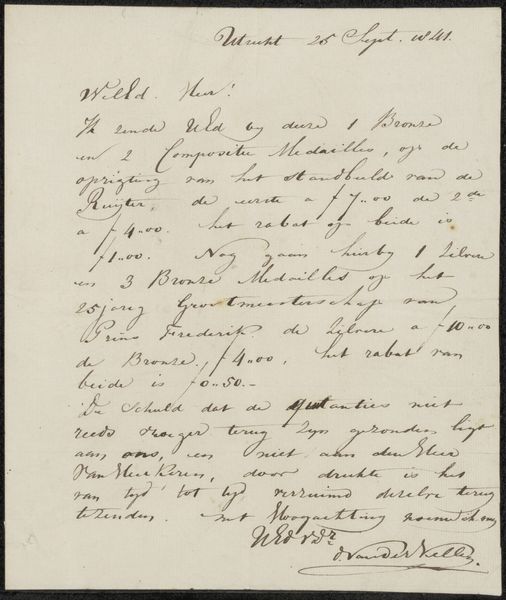 Utrecht 25 Sept. 1841.
WelEd. Heer!
Ik zende UEd by deze 1 Bronze
en 2 Compositie Medailles, op de
oprigting van het standbeeld van de
Ruijter, de eerste a f 7,,00 de 2de
a f 4,,00. het rabat op beide is
f 1,,00. Nog gaan hierby 1 Zilvere
en 3 Bronze Medailles op het
25jarig Grootmeesterschap van
Prins Frederik. de Zilvere a f 10,,00
de Bronze, f 4,,00, het rabat van
beide is f 0,,50.-
De Schuld dat de quitanties niet
reeds vroeger terug zyn gezonden ligt
aan ons, en niet aan den Heer
van Meerkeren, door drukte is het
van tyd tot tyd verzuimd dezelve terug
tezenden. met Hoogachting noem ik my
UEd. v. Dr.
D. van der Kellen.